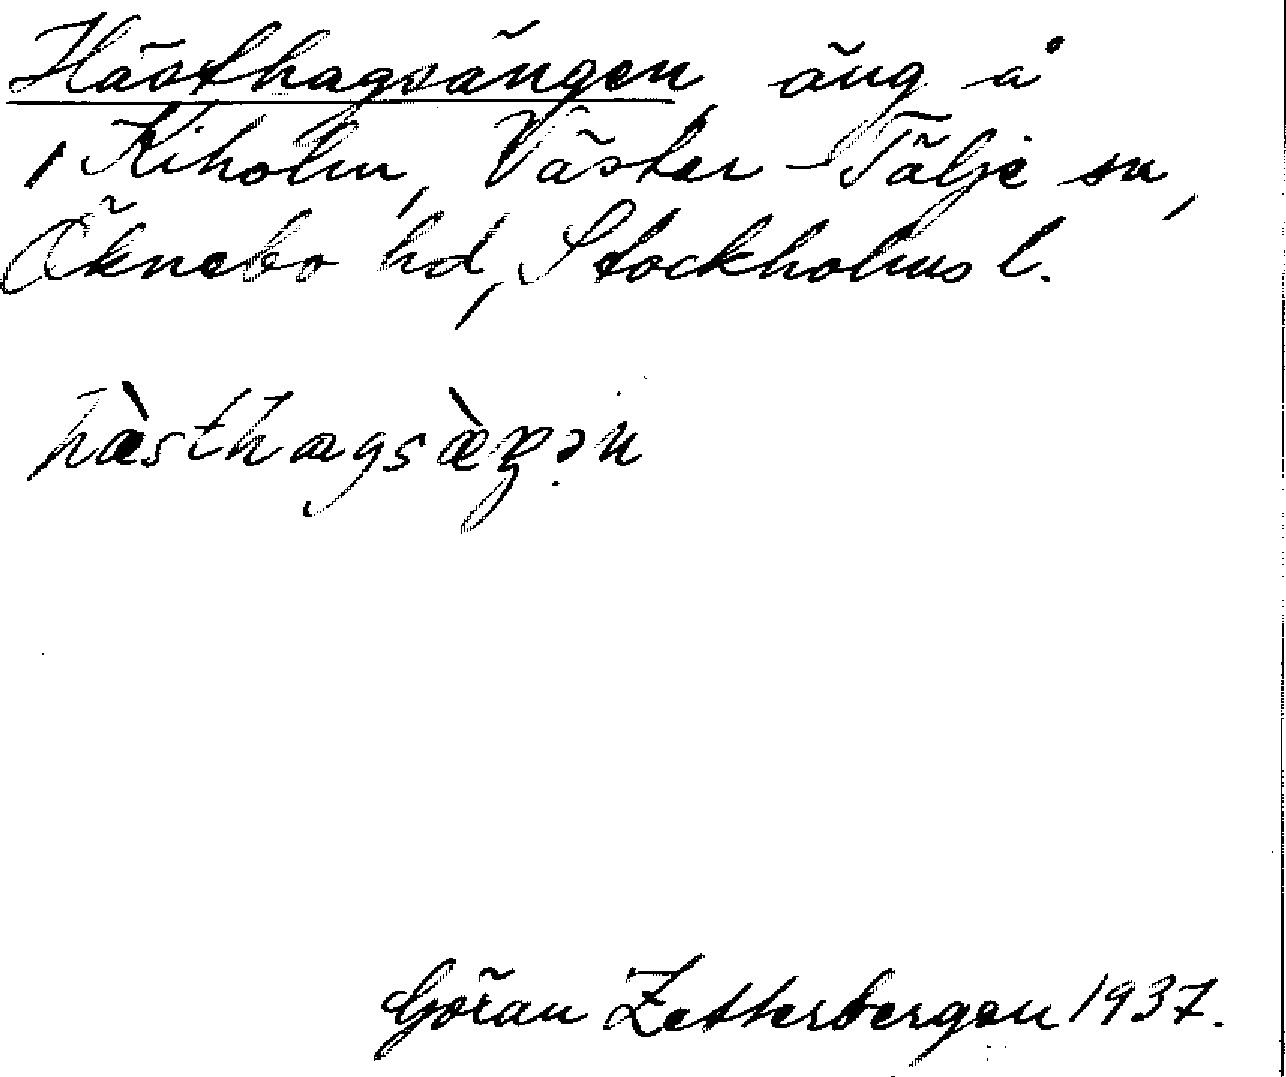 Hästhagsängen, äng å
1 Kiholm, Väster-Tälje sn,
Öknebo hd, Stockholms l.
hæ̀sthagsæ̀ŋ.ən
Göran Zetterbergen 1937.